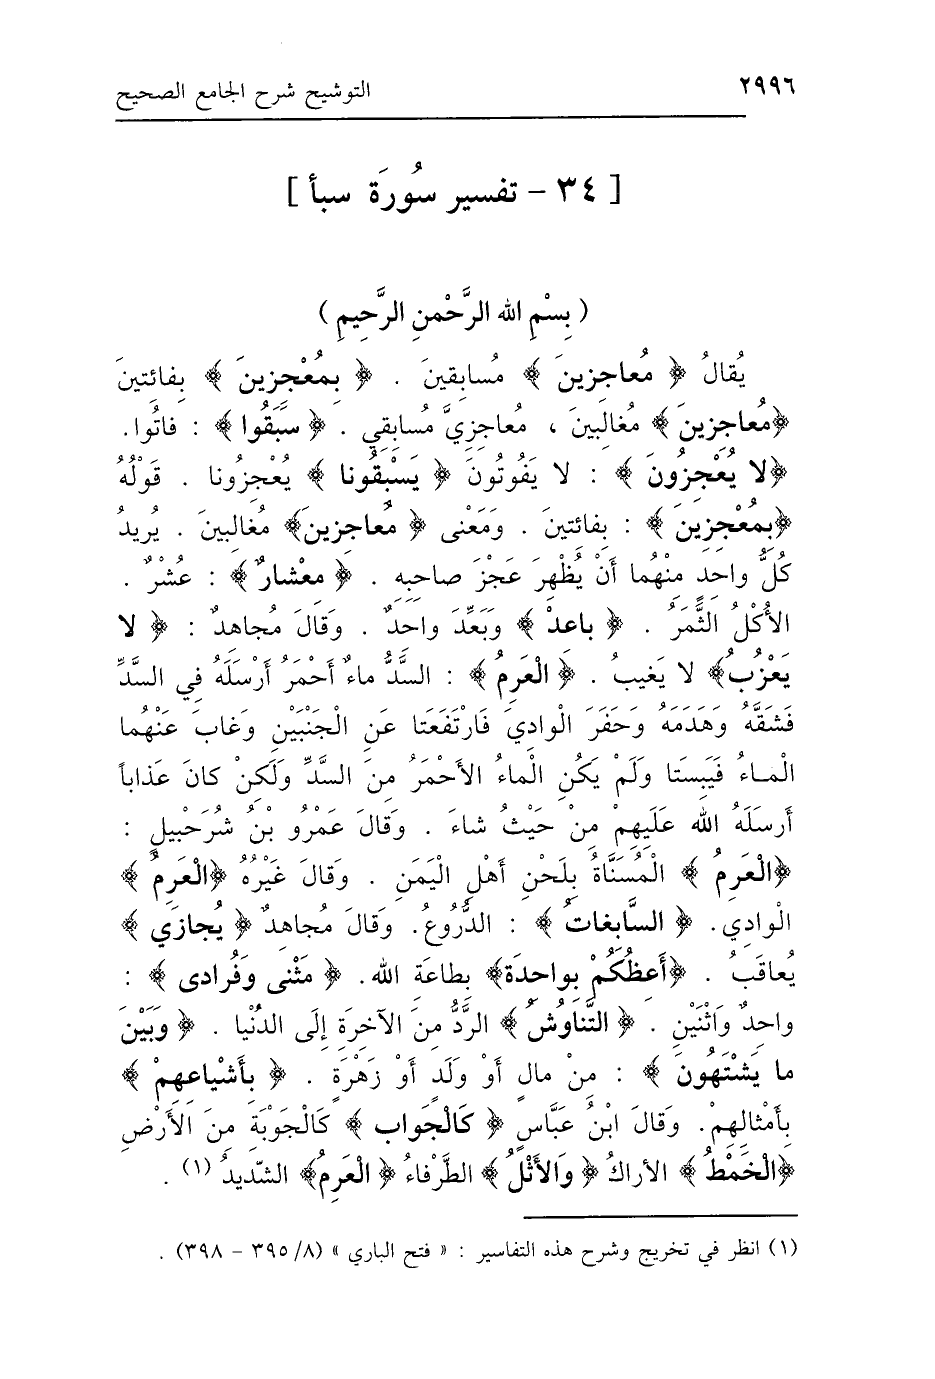 ٢٩٩٦ التوشيح شرح الجامع الصحيح
[ ٣٤ - تفسير سُورَة سبأ ]
( بِسْمِ الله الرَّحْمنِ الرَّحِيمِ )
يُقالُ ﴿ مُعاجِزِينَ ﴾ مُسابِقِينَ . ﴿ بِمُعْجِزِينَ ﴾ بِفائتِينَ
﴿مُعاجِزِينَ ﴾ مُغالِبِينَ ، مُعاجِزِيَّ مُسابِقِي . ﴿ سَبَقُوا ﴾ : فاتُوا.
﴿لا يُعْجِزُونَ ﴾ : لا يَفُوتُونَ ﴿ يَسْبِقُونا ﴾ يُعْجِزُونا . قَوْلُهُ
﴿بِمُعْجِزِينَ ﴾ : بِفائتِينَ . وَمَعْنى ﴿ مُعاجِزِينَ﴾ مُغالِبِينَ . يُرِيدُ
كُلُّ واحِدٍ مِنْهُما أَنْ يُظْهِرَ عَجْزَ صاحِبِهِ . ﴿ مِعْشارٌ ﴾ : عُشْرٌ .
الأُكْلُ الثَّمَرُ . ﴿ باعِدْ ﴾ وَبَعِّدَ واحِدٌ . وَقالَ مُجاهِدٌ : ﴿ لا
يَعْزُبُ﴾ لا يَغِيبُ . ﴿ الْعَرِمُ ﴾ : السَّدُّ ماءٌ أَحْمَرُ أَرْسَلَهُ فِي السَّدِّ
فَشَقَّهُ وَهَدَمَهُ وَحَفَرَ الْوادِيَ فَارْتَفَعَتا عَنِ الْجَنْبَيْنِ وَغابَ عَنْهُما
الْمـاءُ فَيَبَسَتا وَلَمْ يَكُنِ الْماءُ الأَحْمَرُ مِنَ السَّدِّ وَلَكِنْ كانَ عَذاباً
أَرسَلَهُ الله عَلَيهِمْ مِنْ حَيْثُ شاءَ . وَقالَ عَمْرُو بْنُ شُرَحْبِيلٍ :
﴿الْعَرِمُ ﴾ الْمُسَنَّاةُ بِلَحْنِ أَهْلِ الْيَمَنِ . وَقالَ غَيْرُهُ ﴿الْعَرِمُ ﴾
الْوادِي. ﴿ السَّابِغاتُ ﴾ : الدُّرُوعُ. وَقالَ مُجاهِدٌ ﴿ يُجازَي ﴾
يُعاقَبُ . ﴿أَعِظُكُمْ بِواحِدَة﴾ بِطاعَةِ الله. ﴿ مَثْنى وَفُرادى ﴾ :
واحِدٌ وَاثْنَيْنِ . ﴿ التَّناوُشُ ﴾ الرَّدُّ مِنَ الآخِرَةِ إِلَى الدُنْيا . ﴿ وَبَيْنَ
ما يَشْتَهُونَ ﴾ : مِنْ مالٍ أَوْ وَلَدٍ أَوْ زَهْرَةٍ . ﴿ بِأَشْياعِهِمْ ﴾
بِأَمْثالِهِمْ. وَقالَ ابْنُ عَبَّاسٍ ﴿ كَالْجَوابِ ﴾ كَالْجَوْبَةِ مِنَ الأَرْضِ
﴿الْخَمْطُ ﴾ الأراكُ ﴿ وَالأَثْلُ ﴾ الطَّرْفاءُ ﴿ الْعَرِمُ﴾ الشّدِيدُ (١) .
(١) انظر في تخريج وشرح هذه التفاسير : « فتح الباري » (٨/ ٣٩٥ – ٣٩٨) .